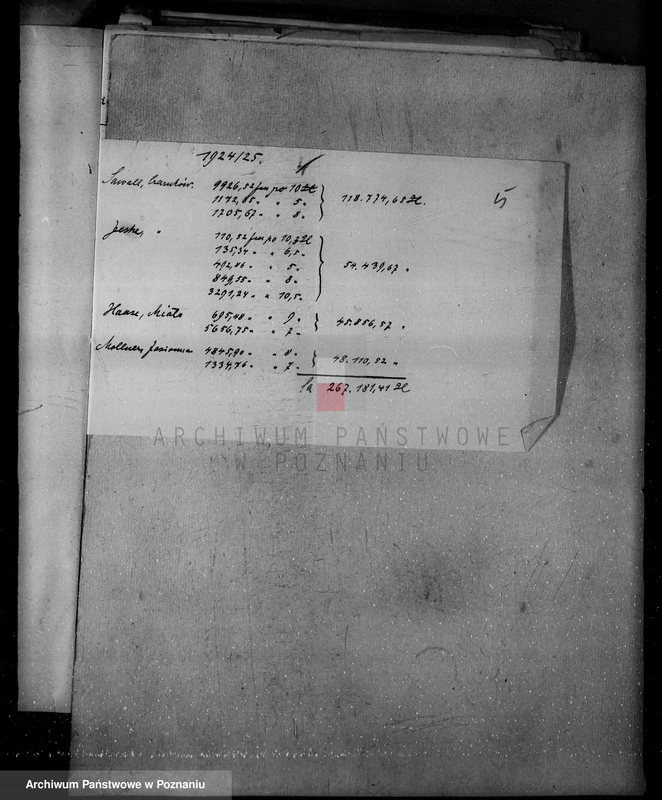 1924/25.
5
Sawall, Czarnków. 9926,52 fm po 10 zł
1172,05 " " 5 " 118.774,65 zł.
1705,67 " " 8 "
Jeske, " 110,52 fm po 10,3 zł
135,34 " " 6,5 "
492,86 " " 5 " 54.439,67 "
849,55 " " 8 "
3291,24 " " 10,5 "
Haase, Miały 695,48 " " 9 "
5656,75 " " 7 " 45.856,57 "
4845,90 " " 8 "
1334,76 " " 7 " 48.110,52 "
Sa 267.181,41 zł
ARCHIWUM PAŃSTWOWE
W POZNANIU
Archiwum Państwowe w Poznaniu